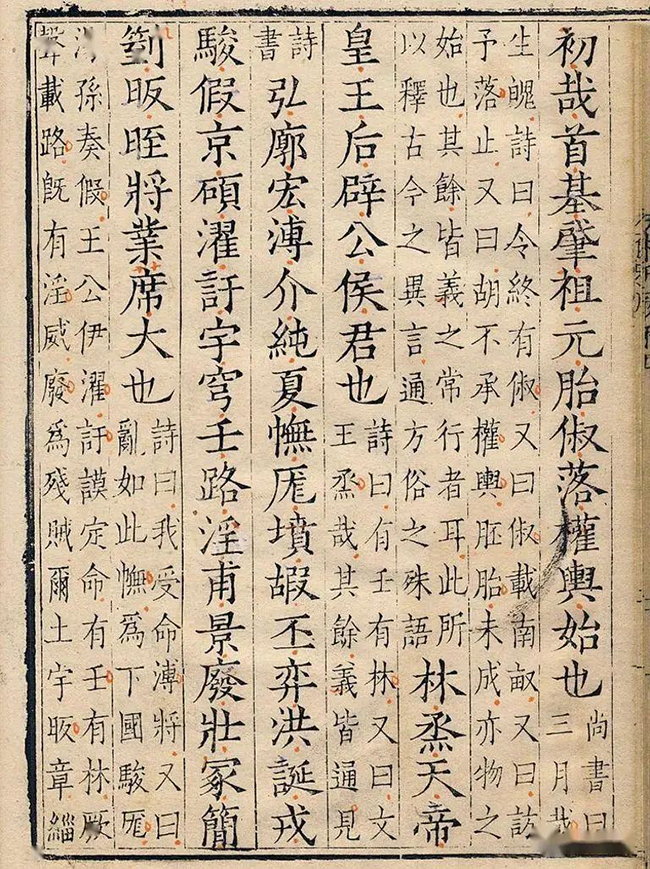 初哉首基肈祖元胎俶落權輿始也
尚書曰
三月哉
生魄詩曰令終有俶又曰俶載南畝又曰訪
予落止又曰胡不承權輿胚胎未成亦物之
始也其餘皆義之常行者耳此所
以釋古今之異言通方俗之殊語
林烝天帝
皇王后辟公侯君也
詩曰有壬有林又曰文
王烝哉其餘義皆通見
詩
書
弘廓宏溥介純夏幠厖墳嘏丕弈洪誕戎
駿假京碩濯訏宇穹壬路淫甫景廢壯冢簡
箌昄晊將業席大也
詩曰我受命溥將又曰
亂如此幠為下國駿厖
湯孫奏假王公伊濯訏謨定命有壬有林厥
聲載路旣有淫威廢為殘賊爾土宇昄章緇